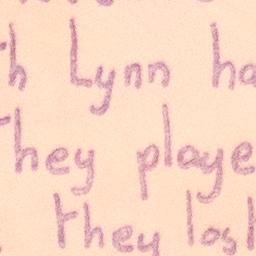 th Lynn ha
They playe
they los